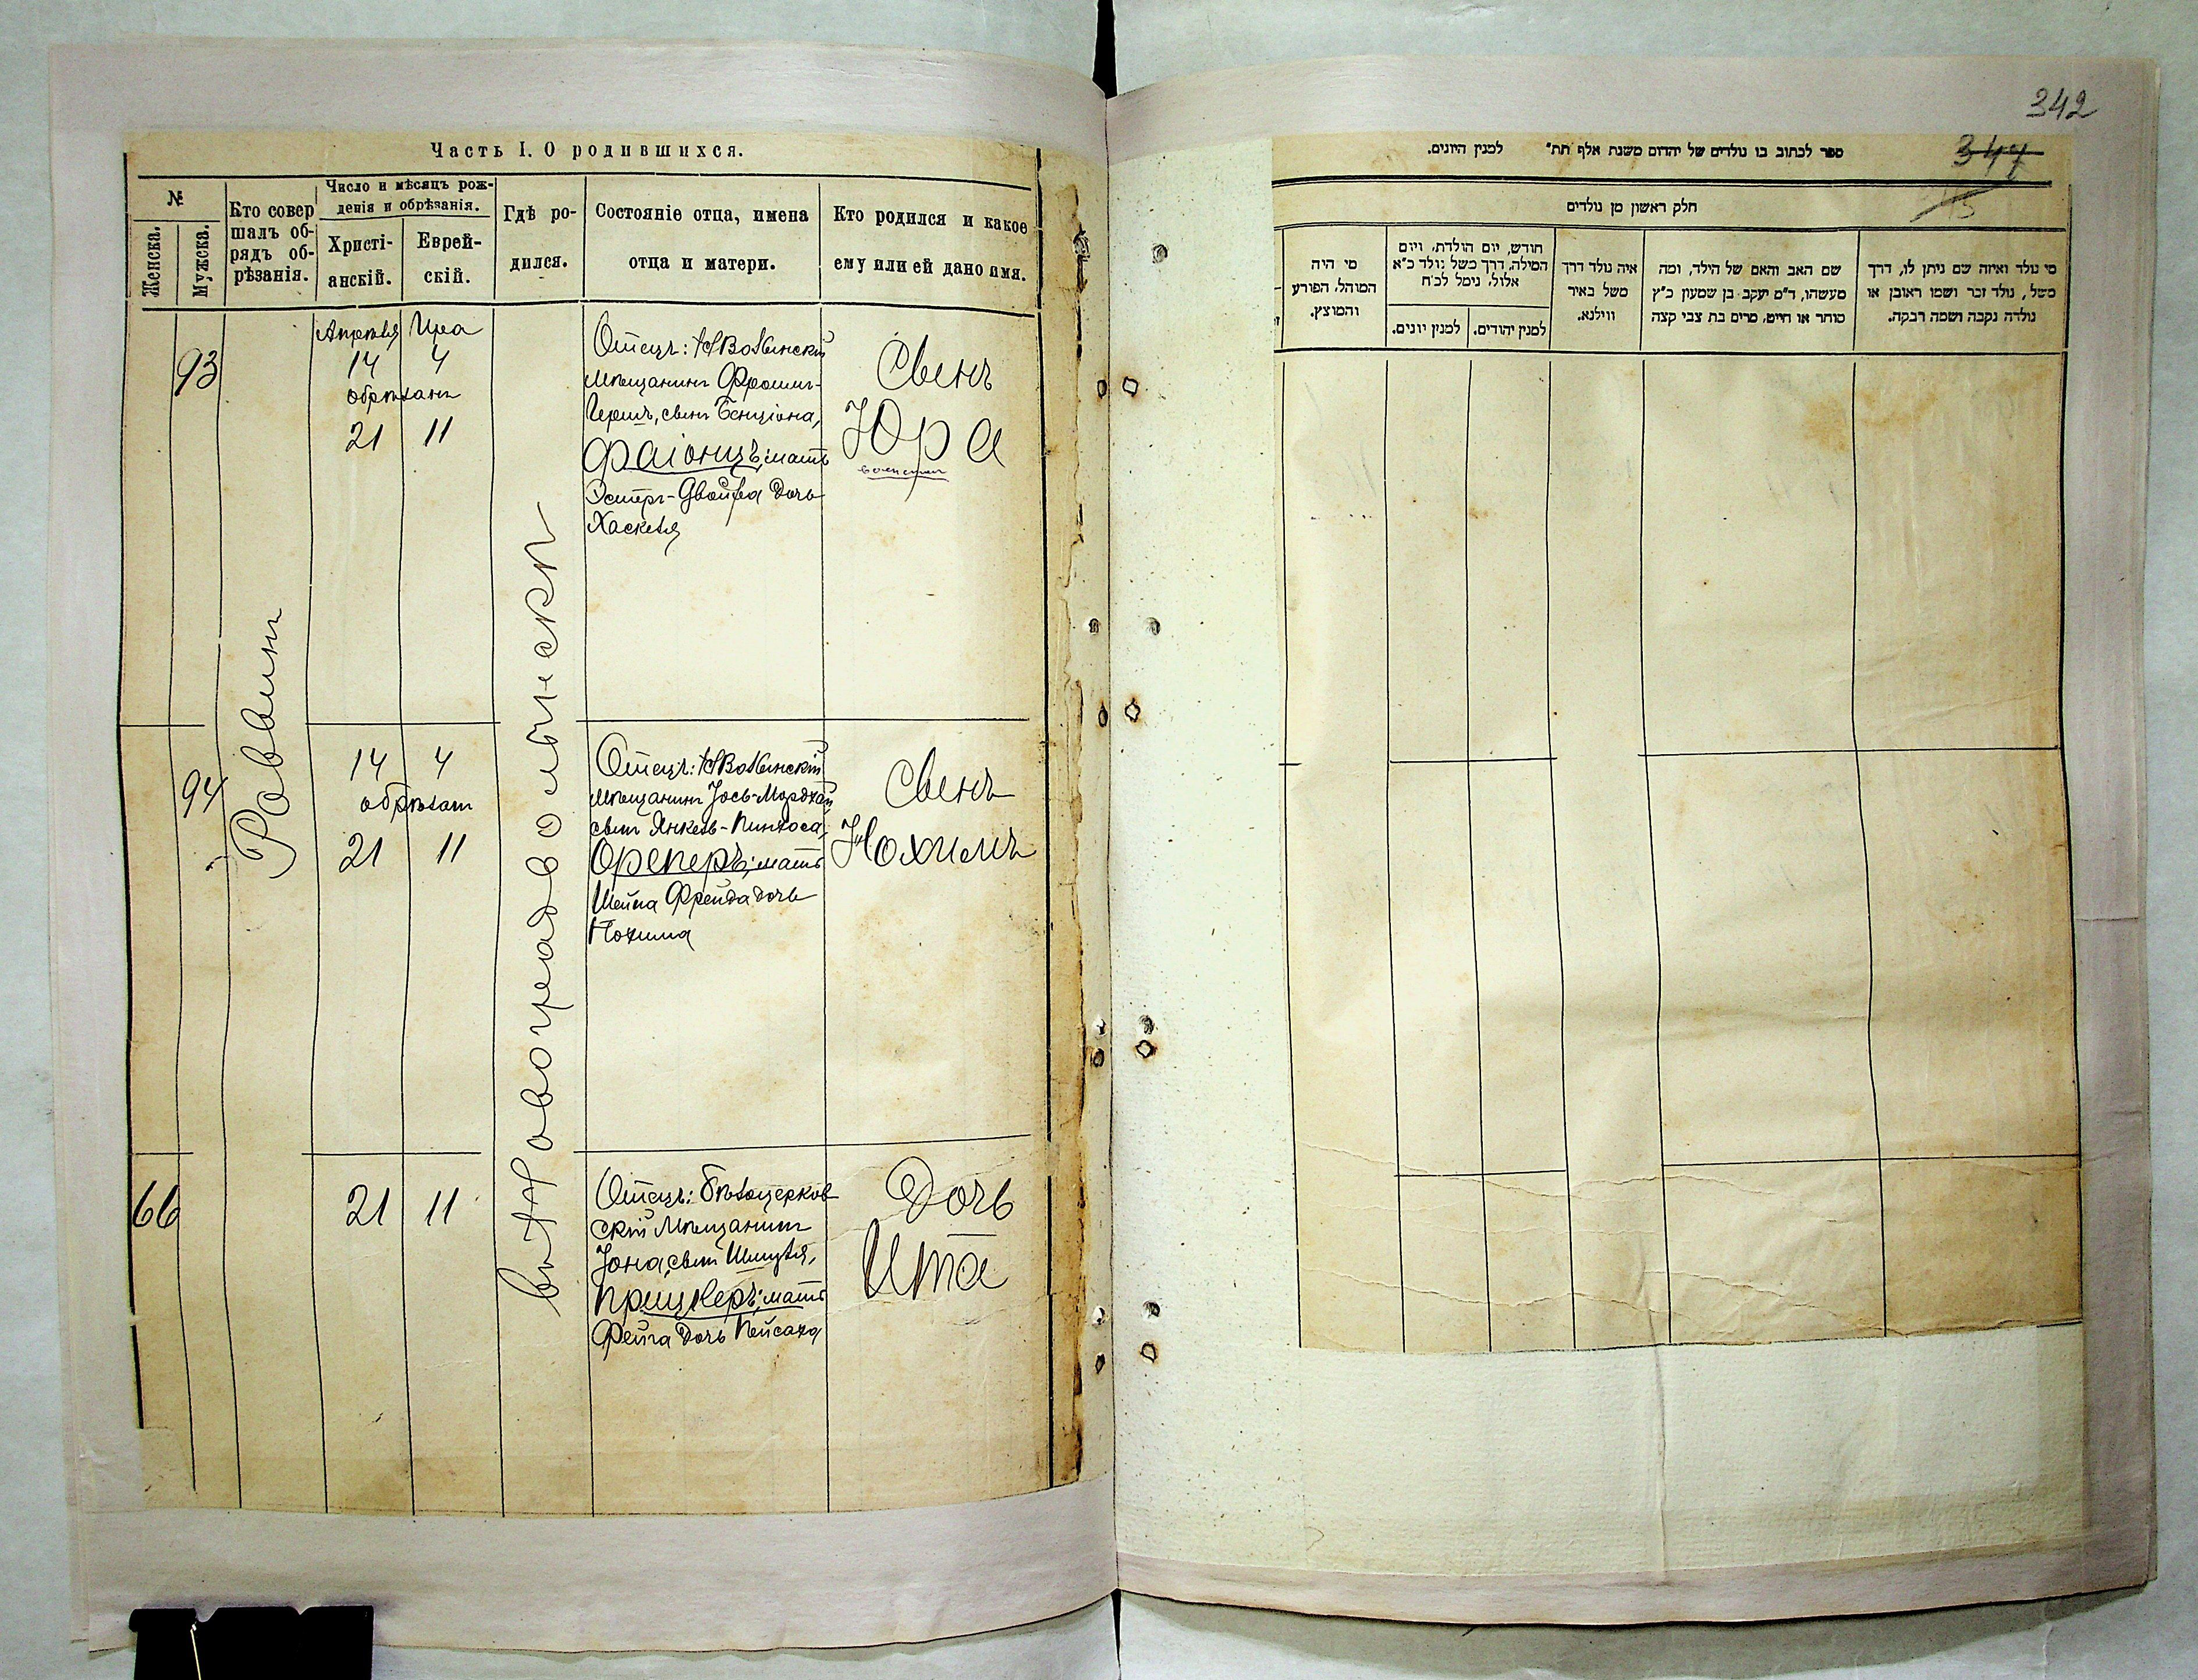 Часть I. О родившихся.
№
Женска.
Мужска.
Кто совер
шалъ об-
рядъ об-
рѣзанія.
Число и мѣсяцъ рож-
денія и обрѣзанія.
Христі-
анскій.
Еврей-
скій.
Гдѣ ро-
дился.
Состояніе отца, имена
отца и матери.
Кто родился и какое
ему или ей дано имя.
Раввинъ
въ Новоградволынскѣ
93
Апрѣля Іира
14 4
обрѣзанъ
21 11
Отецъ: НВолынскій
мѣщанинъ Фроимъ-
Гершъ, сынъ Бенціона,
Фаіонцъ; мать
Эстеръ-Двойра дочь
Хаскеля
Сынъ
Юра
94
14 4
обрѣзанъ
21 11
Отецъ: НВолынскій
мѣщанинъ Іось-Мордхай
сынъ Янкель-Пинхоса,
Эреперъ; мать
Шейна Фрейда дочь
Нохима
Сынъ
Нохимъ
66
21 11
Отецъ: Бѣлоцерков
скій мѣщанинъ
Іона, сынъ Шмуля,
Прицкеръ; мать
Фейга дочь Пейсаха
Дочь
Ита
342
347
ספר לכתוב בו נולדים של יהדום משנת אלף תת״ למנין היונים.
חלק ראשון מן נולדים
מי נולד ואיזה שם ניתן לו, דרך
משל, נולד זכר ושמו ראובן או
נולדה נקבה ושמה רבקה.
שם האב והאם של הילד, ומה
מעשהו, ד״מ יעקב בן שמעון כ״ץ
סוחר או חייט, מרים בת צבי קצה
איה נולד דרך
משל באיר
ווילנא.
חודש, יום הולדת, ויום
המילה, דרך משל נולד כ״א
אלול, נימל לכ״ח
למנין יהודים.
למנין יונים.
מי היה
המוהל, הפורע
והמוצץ.